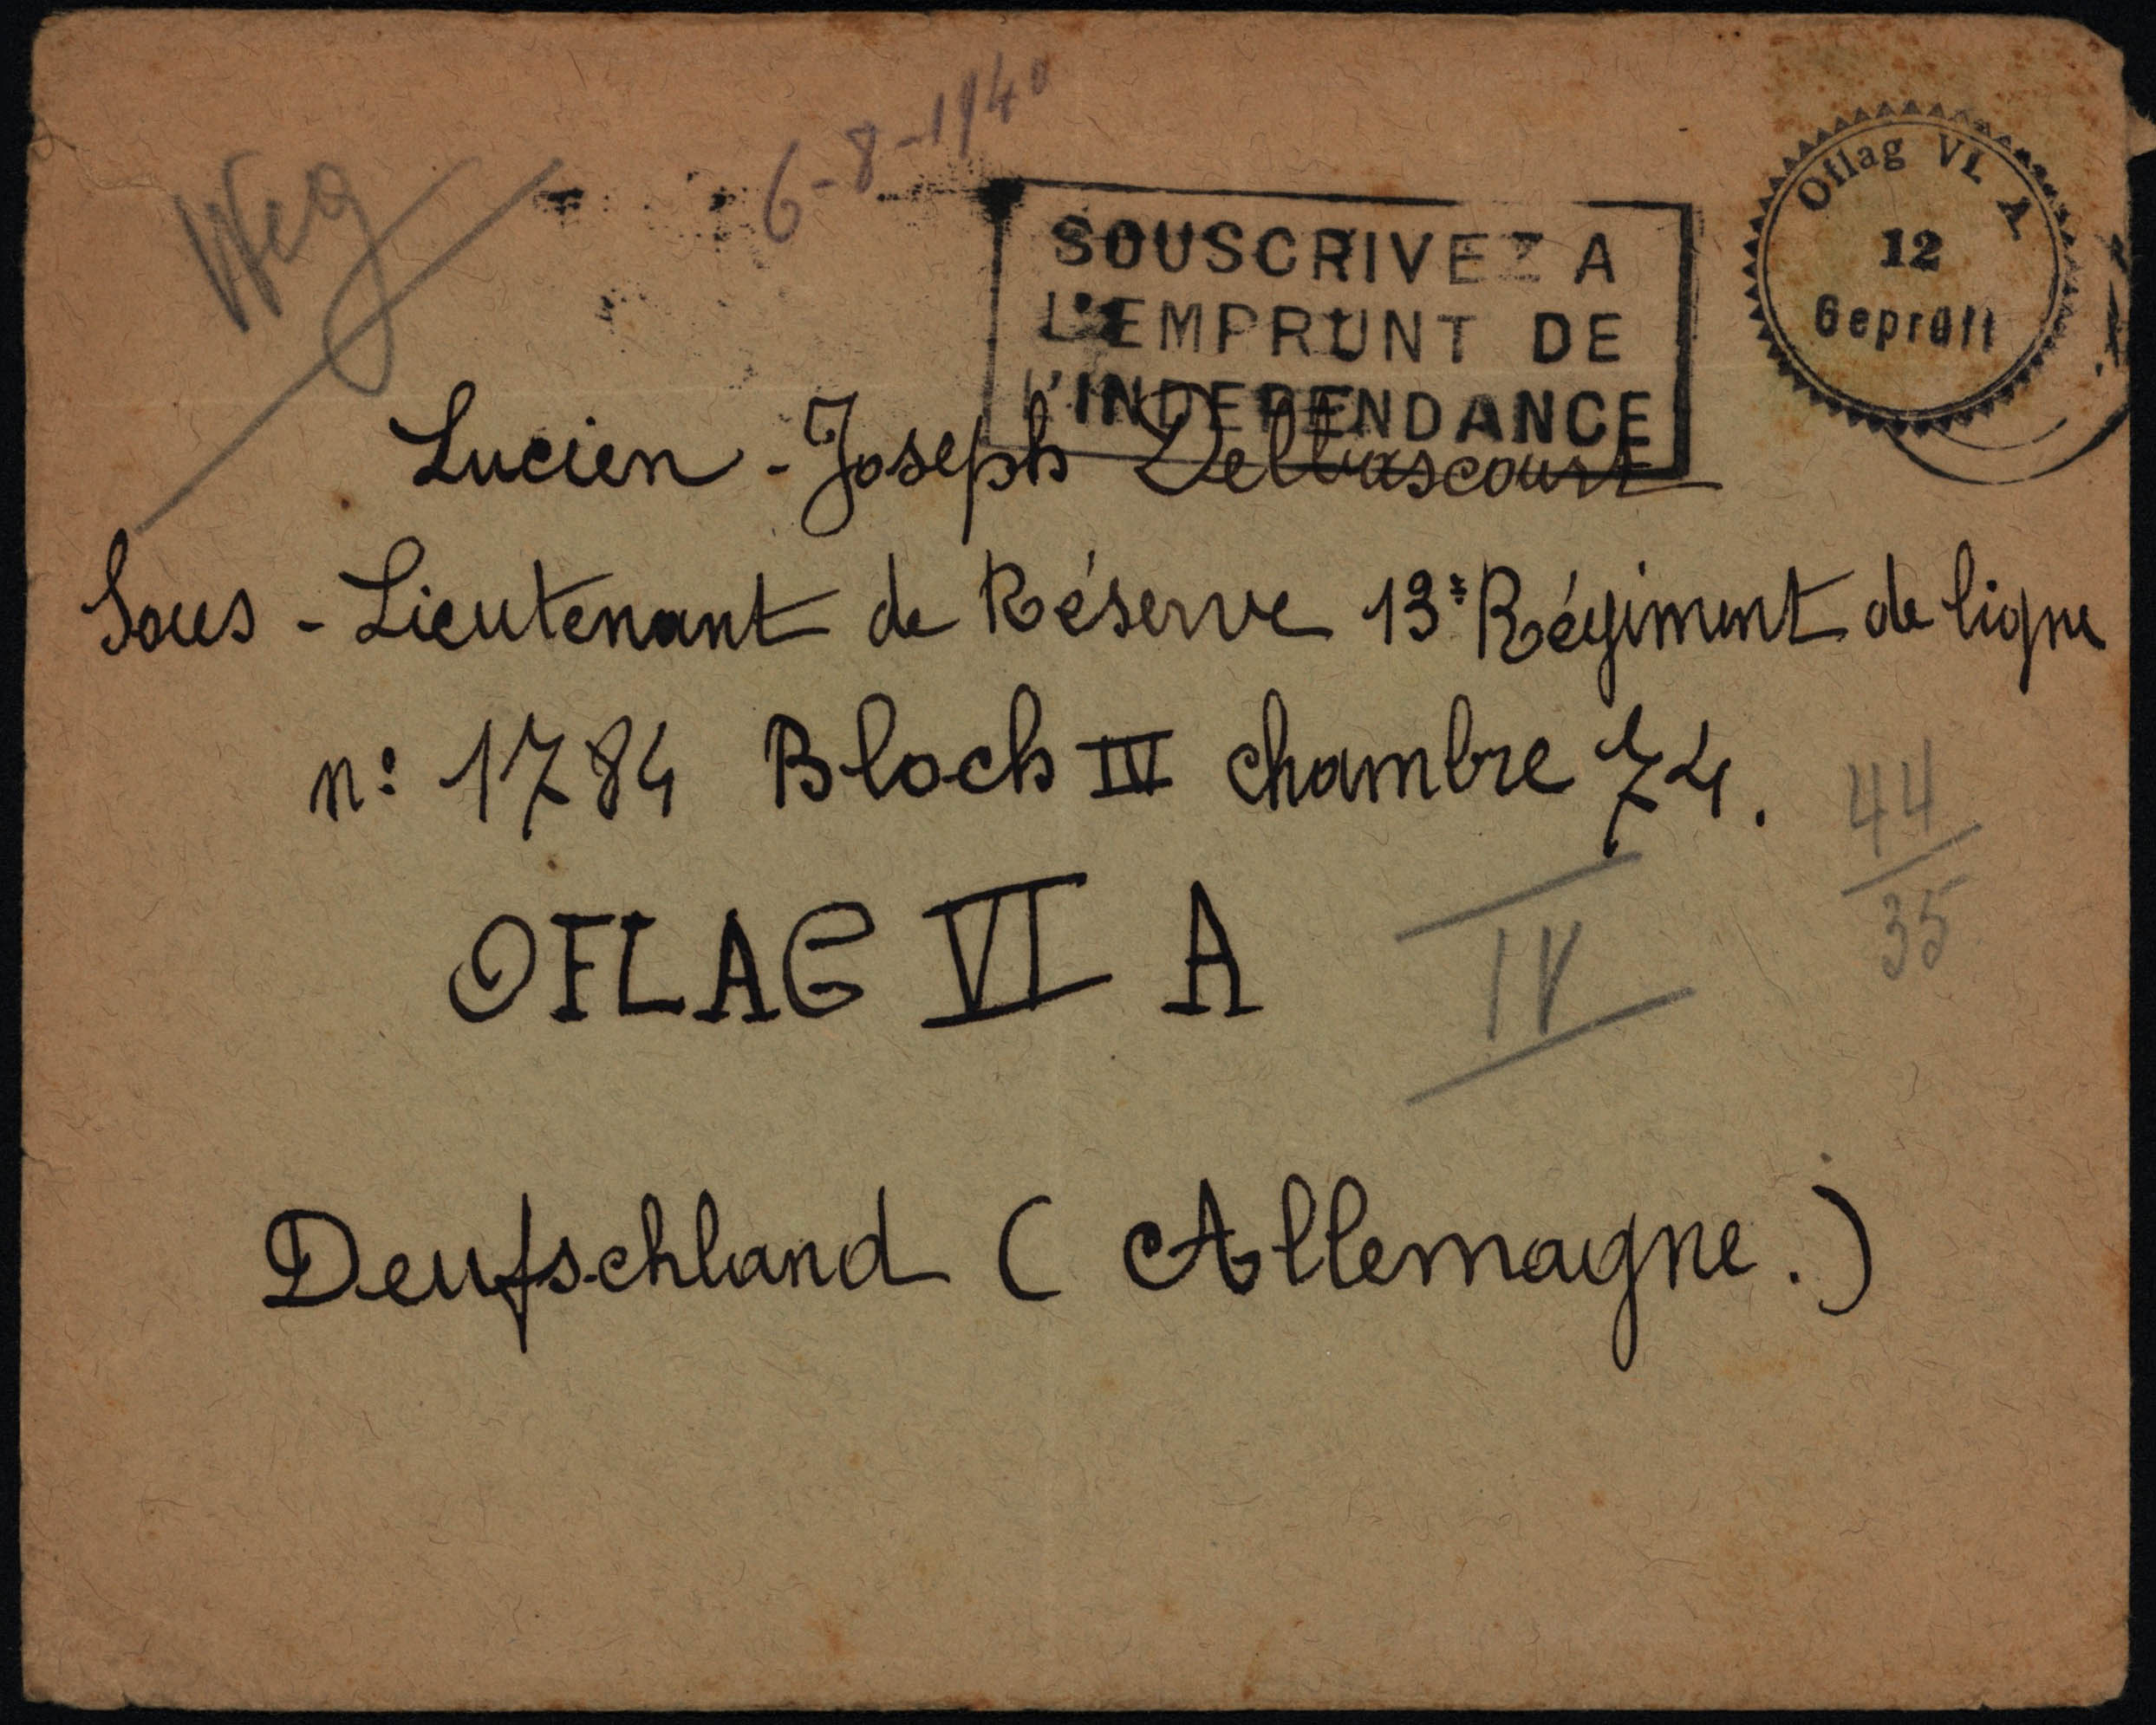 Weg
6-8-1940
SOUSCRIVEZ A
L'EMPRUNT DE
L'INDEPENDANCE
Oflag VI A
12
Geprüft
Lucien - Joseph
Sous - Lieutenant de Réserve 13e Régiment de ligne
n° 1784 Bloch IV chambre 74.
44
35
OFLAG VI A
IV
Deutschland ( Allemagne. )